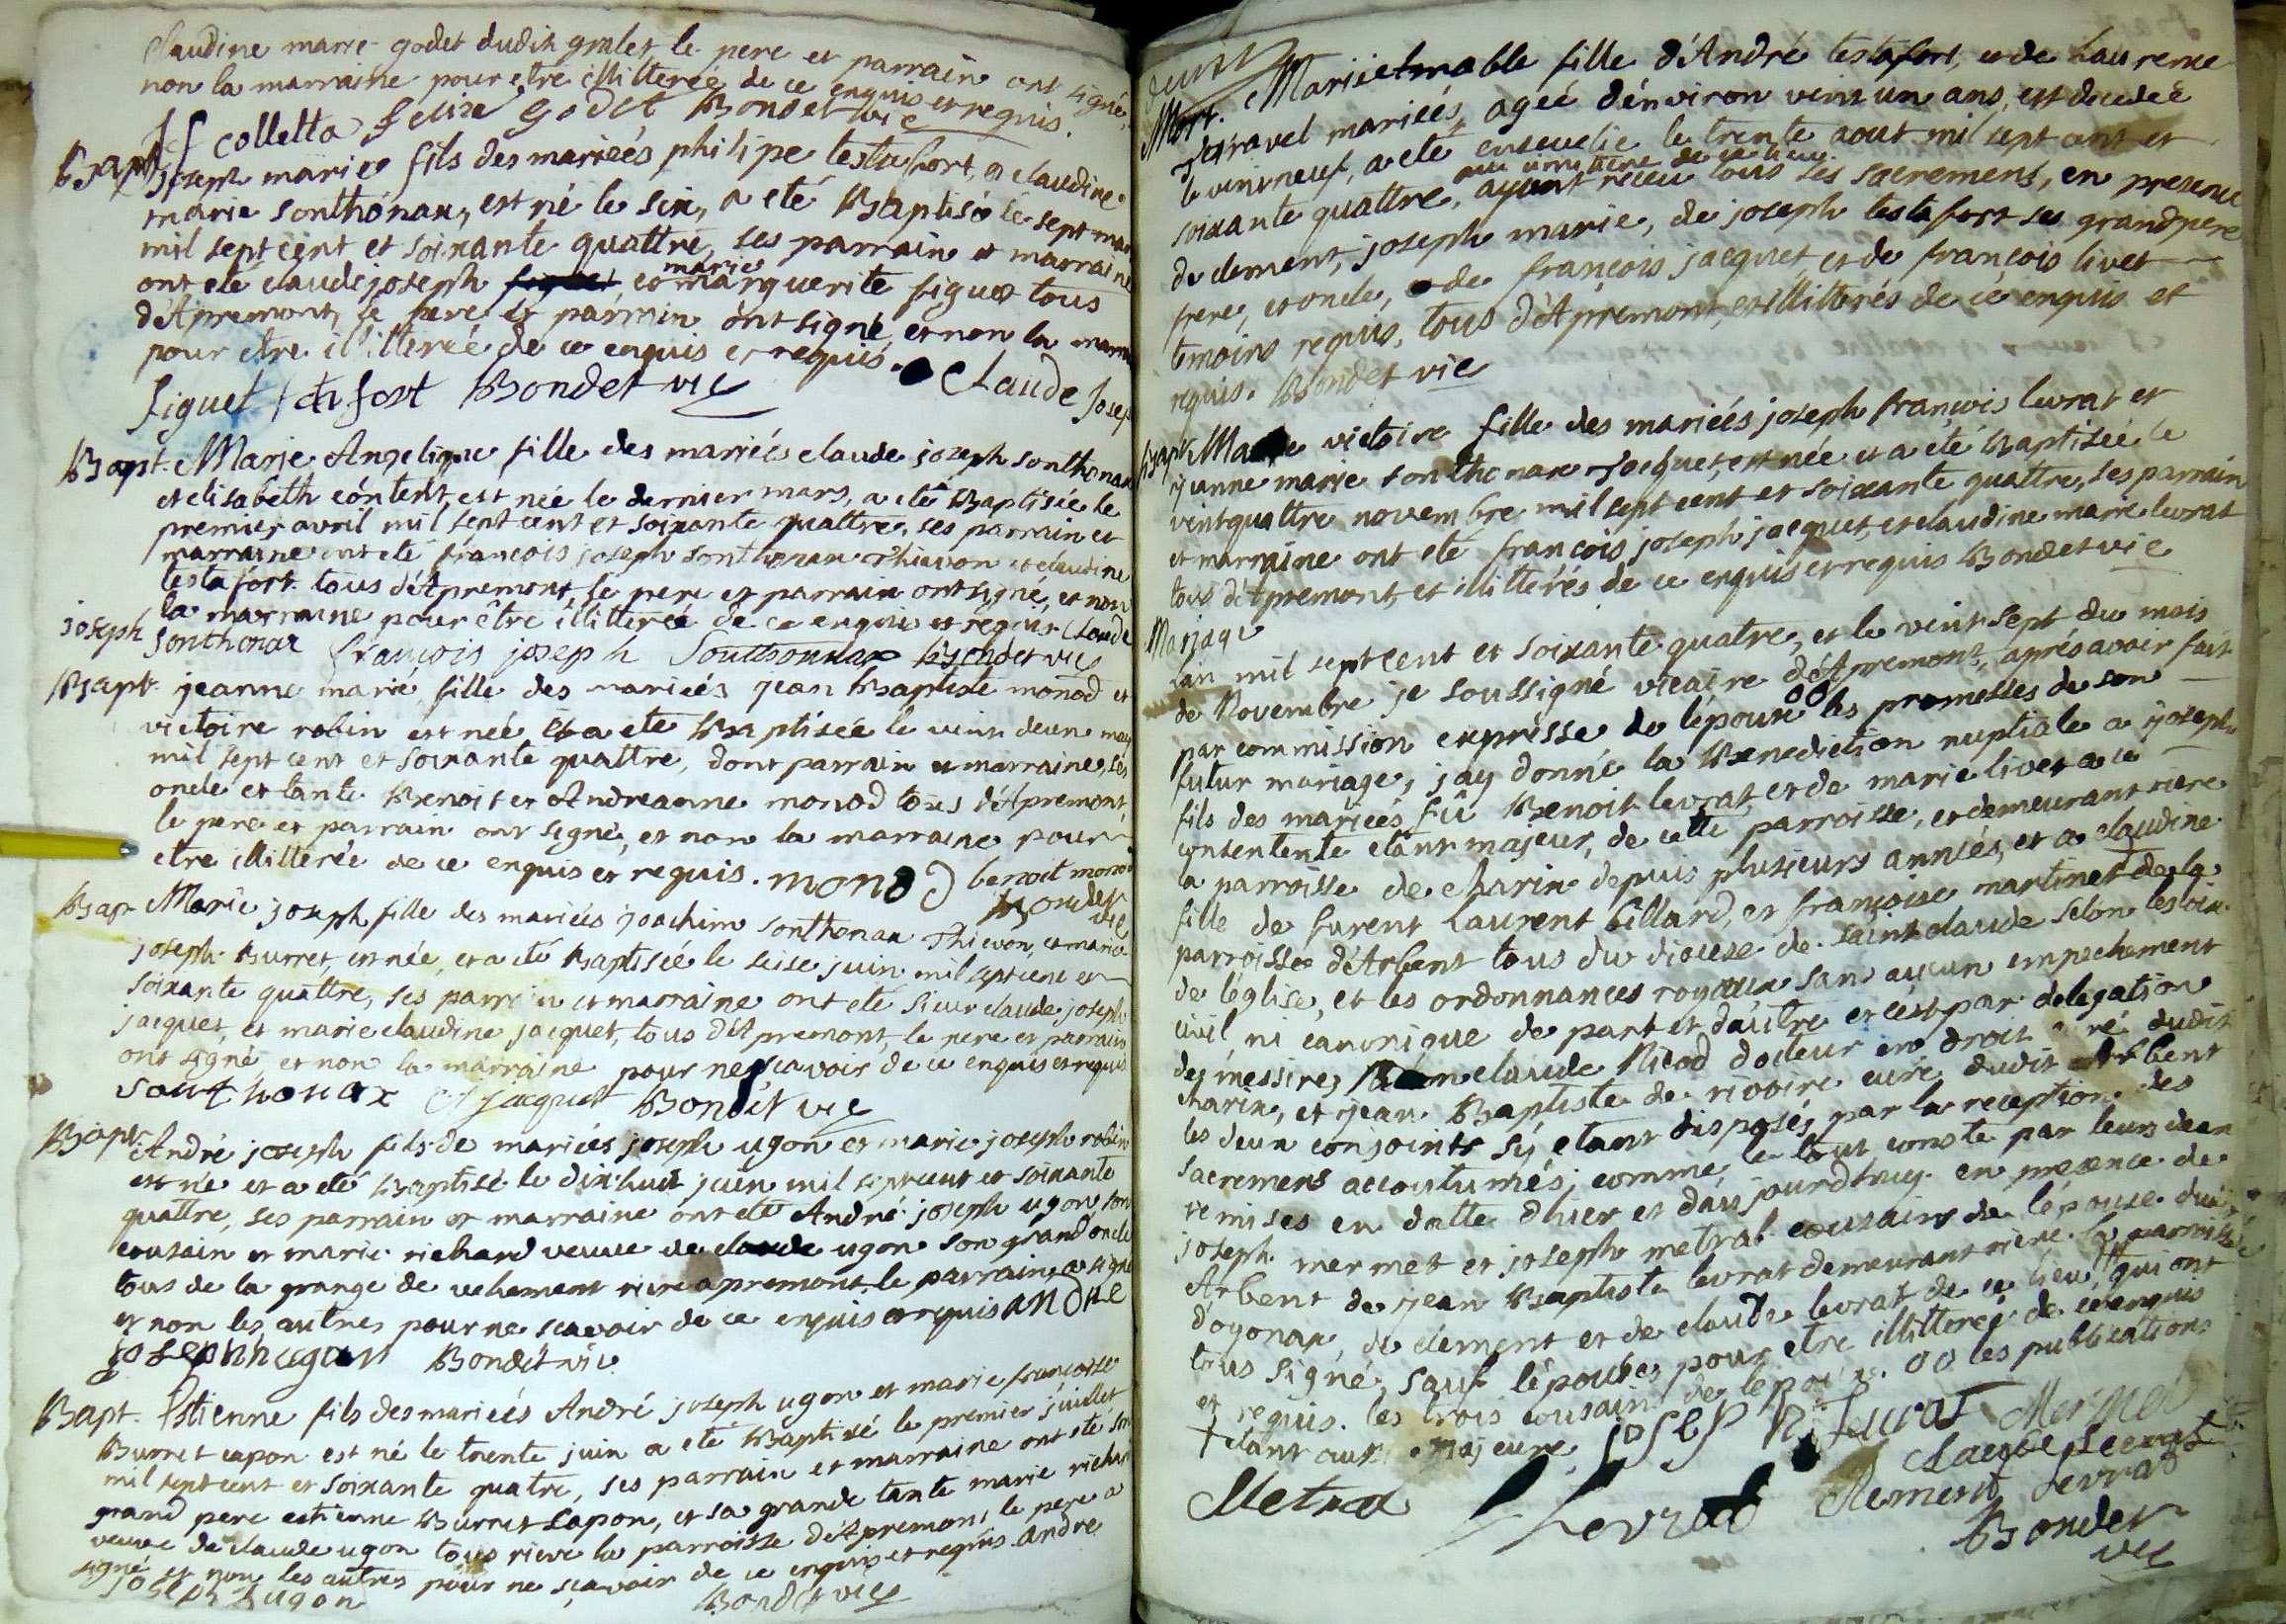 Claudine marie godet dudit gralet le pere et parrain ont signé,
non la marraine pour etre illiterée de ce enquis et requis.
J f colletta felix godet Bondet vic
Bapt. joseph marie fils des mariées philipe testafort, et claudine
marie sonthonax, est né le six, a eté Baptisé le sept mars
mil sept cent et soixante quattre, ses parrain et marraine
ont eté claude joseph et marie marguerite figuet tous
d'Apremont, le pere et parrain ont signé, et non la marraine
pour etre illiterée de ce enquis et requis. Claude Joseph
figuet fort Bondet vic
Bapt. Marie Angelique fille des mariées claude joseph sonthonax
et elisabeth content, est née le dernier mars, a eté Baptisée le
premier avril mil sept cent et soixante quattre, ses parrain et
marraine ont eté françois joseph sonthonax Thievon et claudine
testafort tous d'Apremont, le pere et parrain ont signé, et non
la marraine pour être illiterée de ce enquis et requis Claude
joseph Sonthonax françois joseph Southonnax Bondet vic
Bapt. jeanne marie, fille des mariées jean Baptiste monod et
victoire robin est née et a eté Baptisée le vint deux may
mil sept cent et soixante quattre, dont parrain et marraine, ses
oncle et tante Benoit et Andreanne monod tous d'Apremont,
le pere et parrain ont signé, et non la marraine pour
etre illiterée de ce enquis et requis. monod benoit monod
Bondet vic
Bapt. Marie joseph fille des mariées joachim sonthonax Thievon, et marie
joseph Burret, est née, et a eté Baptisée le seise juin mil sept cent et
soixante quattre, ses parrain et marraine ont eté sieur claude joseph
jacquet, et marie claudine jacquet, tous d'Apremont, le pere et parrain
ont signé, et non la marraine pour ne sçavoir de ce enquis et requis
southonax Cl jacquet Bondet vic
Bapt. André joseph fils de mariées joseph ugon et marie joseph robin
est né et a eté Baptisé le dix huit juin mil sept cent et soixante
quattre, ses parrain et marraine ont eté André joseph ugon, son
cousain et marie richard veuve de claude ugon son grand oncle
tous de la grange de vehement riere apremont, le parrain a signé
et non les autres pour ne scavoir de ce enquis et requis andre
joseph hugon Bondet vic
Bapt. Estienne fils des mariées André joseph ugon et marie françoise
Burret capon est né le trente juin a eté Baptisé le premier juillet
mil sept cent et soixante quatre, ses parrain et marraine ont eté son
grand pere estienne Burret capon, et sa grande tante marie richard
veuve de claude ugon tous riere la parroisse d'Apremont, le pere a
signé et non les autres pour ne sçavoir de ce enquis et requis. andre
joseph hugon Bondet vic
Mort. Marie fille d'André testafort, et de Laurence
mariées, ageé d'environ vint un ans, est decedée
le vint neuf, a eté ensevelie le trente aout mil sept cent et
au cimetiere de ce lieu
soixante quattre, ayant receu tous les sacremens, en presence
de clement, joseph marie, de joseph testafort ses grandpere
frere, et oncle, de françois jacquet, et de françois livet
temoins requis, tous d'Apremont, et illiterés de ce enquis et
requis. Bondet vic
Bapt. Marie victoire fille des mariées joseph françois levrat et
jeanne marie sonthonax Jacquet, est née et a eté Baptisée le
vint quattre novembre mil sept cent et soixante quattre, ses parrain
et marraine ont eté françois joseph jacquet, et claudine marie levrat
tous d'Apremont, et illiterés de ce enquis et requis Bondet vic
Mariage
Lan mil sept cent et soixante quatre, et le vint sept du mois
de Novembre je soussigné vicaire d'Apremont, après avoir fait
par commission expresse de l'epoux 00 les promesses de son
futur mariage, j'ay donné la Benediction nuptiale a joseph
fils des mariées fû Benoit levrat, et de marie livet a ce
consentente etant majeur, de cette parroisse, et demeurant riere
la parroisse de charix depuis plusieurs années, et a claudine
fille de furent Laurent billard, et françoise martinet de la
parroisse d'Arbent tous du diocese de saint claude selon les loix
de l'église, et les ordonnances royaux sans aucun empechement
civil, ni canonique de part et d'autre et c'est par delegation
des messires claude Nicod docteur en droit curé dudit
charix, et jean Baptiste de rivoire curé dudit Arbent
les deux conjoints s'y etant disposés par la reception des
sacremens accoutumés; comme le tout conste par leurs deux
remises en datte d'hier et d'aujourd'huy en presence de
joseph mermet et joseph metral cousains de l'epouse dudit
Arbent de jean Baptiste levrat demeurant riere la parroisse
d'oyonax, de clement et de claude levrat de ce lieu, qui ont
tous signé, sauf l'epouse pour etre illiterée de ce enquis
et requis. les trois cousains de l'epoux. 00 les publications
† etant aussi majeure. joseph levrat Mermet
Claude Levrat
Metral Levrat Clement Levrat
Bondet
vic